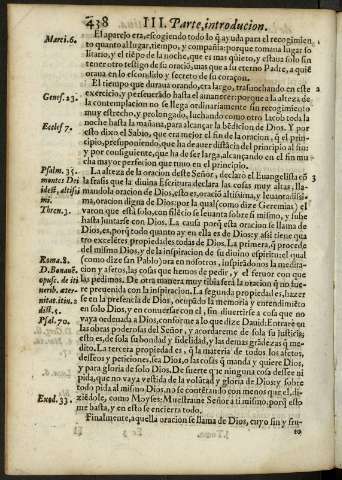 438 III. Parte, introducion.
Marci.6.
El aparejo era, escogiendo todo lo q̃ ayuda para el recogimien
to quanto al lugar, tiempo, y compañia: porque tomaua lugar so
litario, y el tiẽpo de la noche, que es mas quieto, y estaua solo sin
tener otro testigo de su oraciõ, mas que a su eterno Padre, a quiẽ
oraua en lo escondido y secreto de su coraçon.
El tiempo que duraua orando, era largo, trasnochando en este
Genes.23.
exercicio, y perseuerãdo hasta el amanecer: porque a la alteza de
la contemplacion no se llega ordinariamente sin recogimiento
muy estrecho, y prolongado, luchando como otro Iacob toda la
noche hasta la mañana, para alcançar la bẽdicion de Dios. Y por
Eccles 7.
esto dixo el Sabio, que era mejor el fin de la oracion, q̃ el prin-
cipio, presuponiendo, que ha de auer distãcia del principio al fin:
y por consiguiente, que ha de ser larga, alcançando en el fin mu
cha mayor perfecion que tuuo en el principio.
Psalm. 35.
La alteza de la oracion deste Señor, declarò el Euangelista cõ
montes Dei
la frasis que la diuina Escritura declara las cosas muy altas, lla-
idest, altissi
mandola oracion de Dios, esto es, oraciõ altissima, y leuantadissi-
mi.
ma, oracion digna de Dios: por la qual (como dize Geremias) el
Thren.3.
varon que està solo, con silẽcio se leuanta sobre si mismo, y sube
hasta juntarse con Dios. La causa porq̃ esta oracion se llama de
Dios, es, porq̃ todo quanto ay en ella es de Dios; y assi tiene qua
tro excelẽtes propiedades todas de Dios. La primera, q̃ procede
del mismo Dios, y de la inspiracion de su diuino espiritu; el qual
Roma.8.
(como dize san Pablo) ora en nosotros, inspirãdonos la medita-
D.Bonauẽ.
cion y afetos, las cosas que hemos de pedir, y el feruor con que
opusc. de iti
las pedimos. De otra manera muy tibia serà la oracion q̃ no fue-
nerib. æter-
re preuenida con esta inspiracion. La segunda propiedad es, hazer
nitatis. itin. 2
se en la presencia de Dios, ocupãdo la memoria y entendimiẽto
dist. 5.
en solo Dios, y en conuersar con el, sin diuertirse a cosa que no
Psal.70.
vaya ordenada a Dios, conforme a lo que dize Dauid: Entrarè en
las obras poderosas del Señor, y acordareme de sola su justicia,
esto es, de sola su bondad y fidelidad, y las demas grãdezas q̃ me-
dito. La tercera propiedad es, q̃ la materia de todos los afetos,
desseos y peticiones, sea Dios, o las cosas q̃ manda y quiere Dios,
y para gloria de solo Dios. De suerte q̃ ninguna cosa dessee ni
pida, que no vaya vestida de la volũtad y gloria de Dios: y sobre
todo pida al mismo Dios, no se contẽtando con menos que el, di-
Exod. 33.
ziẽdole, como Moyses: Muestrame Señor a ti mismo, porq̃ esto
me basta, y en esto se encierra todo.
Finalmente, aquella oracion se llama de Dios, cuyo fin y fru-
to